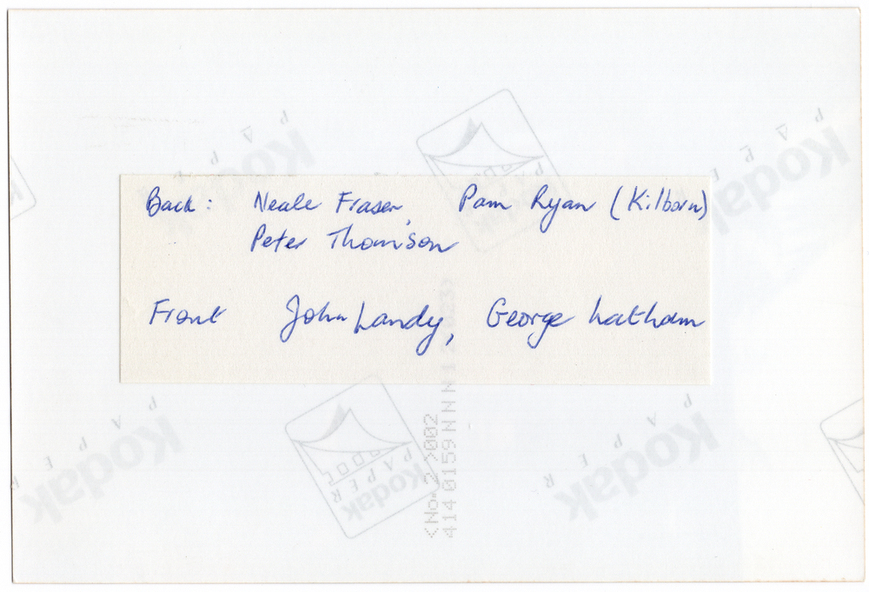 Back : Neale Fraser, Pam Ryan (Kilborn)
Peter Thomson
Front John Landy, George Latham
Kodak
PAPER
Kodak
PAPER
Kodak
PAPER
Kodak
PAPER
Kodak
PAPER
Kodak
PAPER
<No. 2 >002
414 0159 NNN